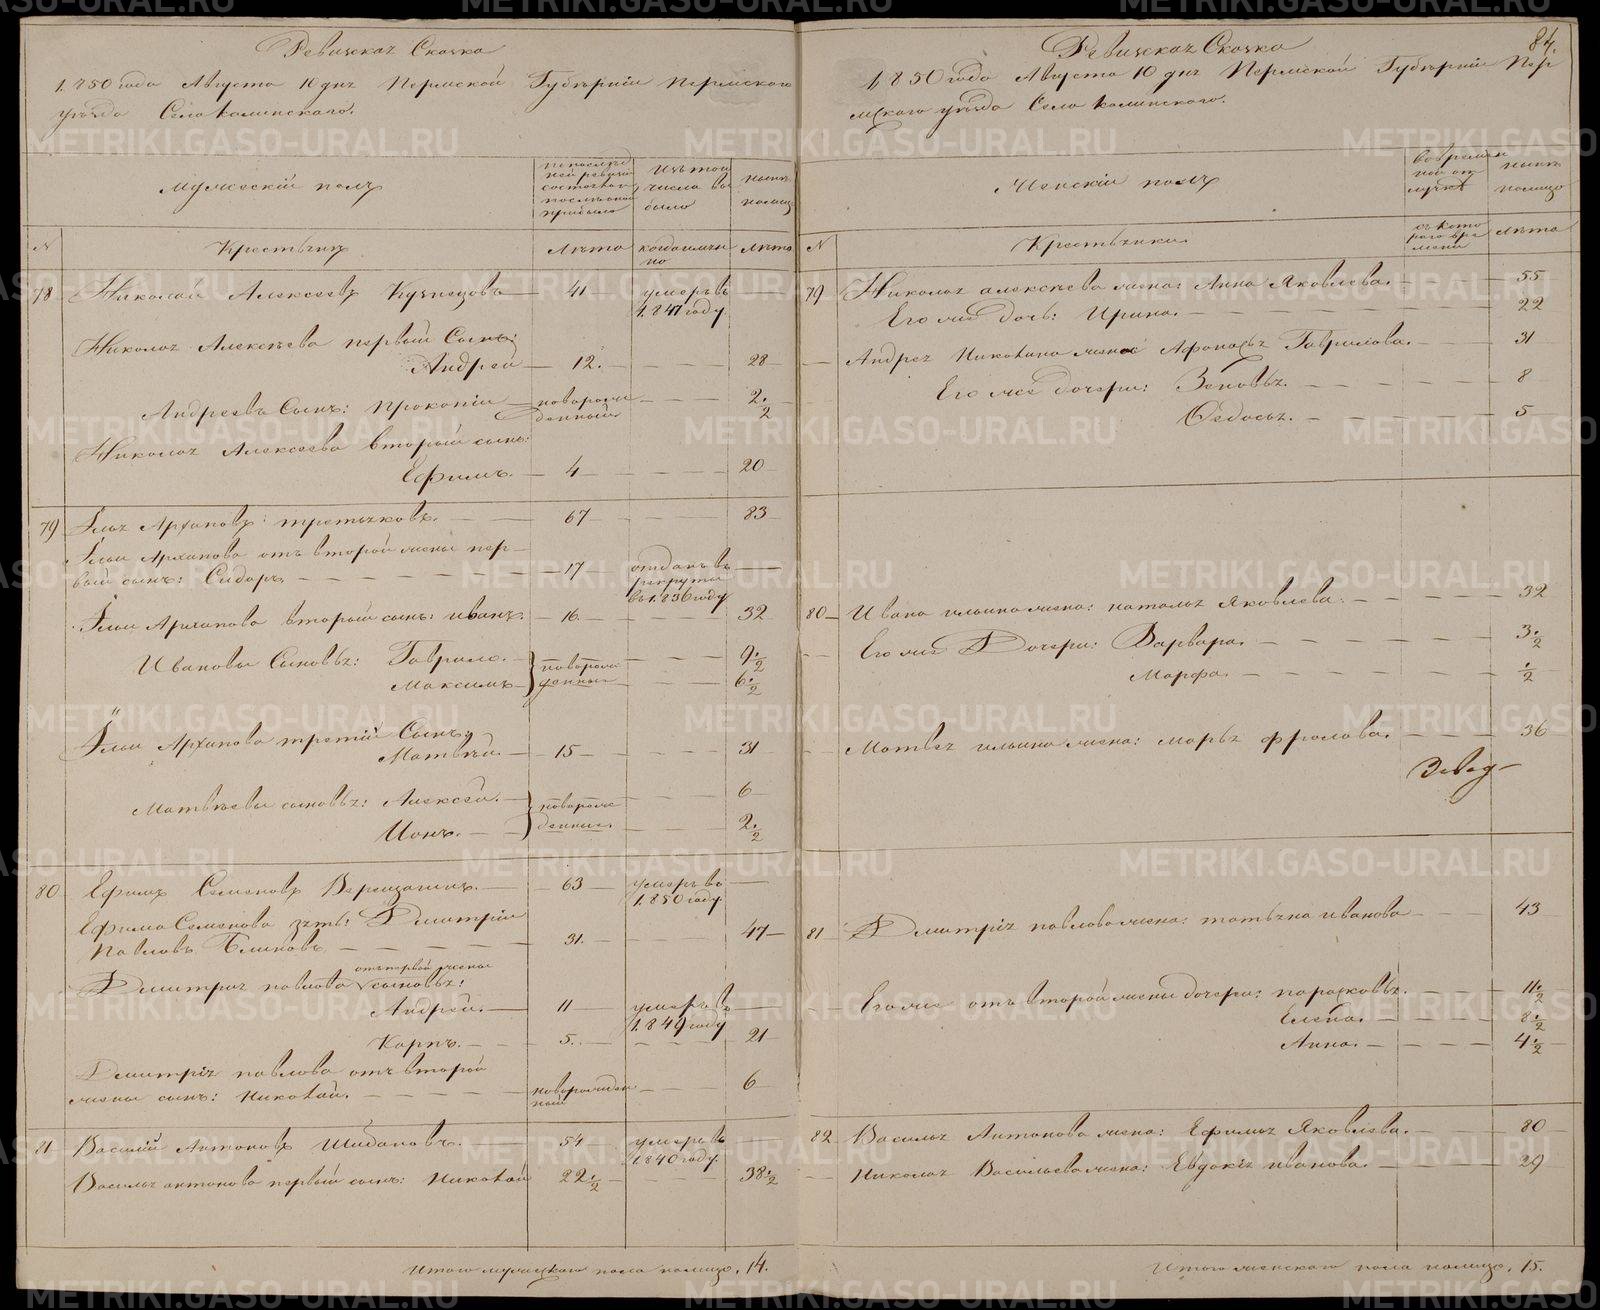 Ревизская Сказка
1850 года Августа 10 дня Пермской Губерніи Пермского
уезда Села Калинского.
Мужескій полъ
по последней ревизіи состояло и после оной прибыло
Изъ того числа выбыло
ныне на лицо
N
Крестьяне
Лета
когда именно
Лета
78 Николай Алексеевъ Кузнецовъ — 41 умеръ въ 1847 году
Николая Алексеева первый Сынъ:
Андрей — 12. 28
Андреевъ Сынъ: Прокопій новорожденный 2.½
Николая Алексеева второй сынъ:
Ефимъ. — 4 20
79 Илья Архиповъ Третьяковъ. 67 83
Ильи Архипова отъ второй жены пер-
вый сынъ: Сидоръ 17 отданъ въ рекруты въ 1836 году
Ильи Архипова второй сынъ: иванъ. 16. 32
Ивановы Сыновья: Гаврило. новорожденные 9.½
Максимъ 6.½
Ильи Архипова третій Сынъ
Матвей. — 15 31
Матвеевы сыновья: Алексей. новорожденные. 6
Ионъ. 2.½
80 Ефимъ Семеновъ Верещагинъ. 63 умеръ въ 1850 году
Ефима Семенова зять: Дмитрій
Павловъ Блиновъ 31. 47
Дмитрія павлова отъ первой жены сыновья:
Андрей. 11 умеръ въ 1849 году
Карпъ. 5. 21
Дмитрія павлова отъ второй
жены сынъ: Николай. новорожденный 6
81 Василій Антоновъ Шидановъ. 54 умеръ въ 1840 году
Василья антонова первый сынъ: Николай 22.½ 38.½
Итого мужеского пола налицо, 14.
84.
Ревизская Сказка
1850 года Августа 10 дня Пермской Губерніи Пер
мского уезда Села Калинского.
Женскій полъ
во временной отлучке
ныне налицо
N
Крестьянки
съ котораго времени
лета
79 Николая алексеева жена: Анна Яковлева. 55
Его же дочь: Ирина. 22
Андрея Николаева жена Афонасья Гаврилова. 31
Его же дочери: Зеновья. 8
Федосья. 5
80 Ивана ильина жена: наталья Яковлева. 32
Его же Дочери: Варвара. 3.½
Марфа. ½
Матвея ильина жена: марья фролова. 36
81 Дмитрія павлова жена: татьяна иванова 43
Его же отъ второй жены дочери: парасковья. 11.½
Елена. 8.½
Анна. 4.½
82 Василья Антонова жена: Ефимья Яковлева. 80
Николая Васильева жена: Евдокія иванова. 29
Итого женского пола налицо, 15.